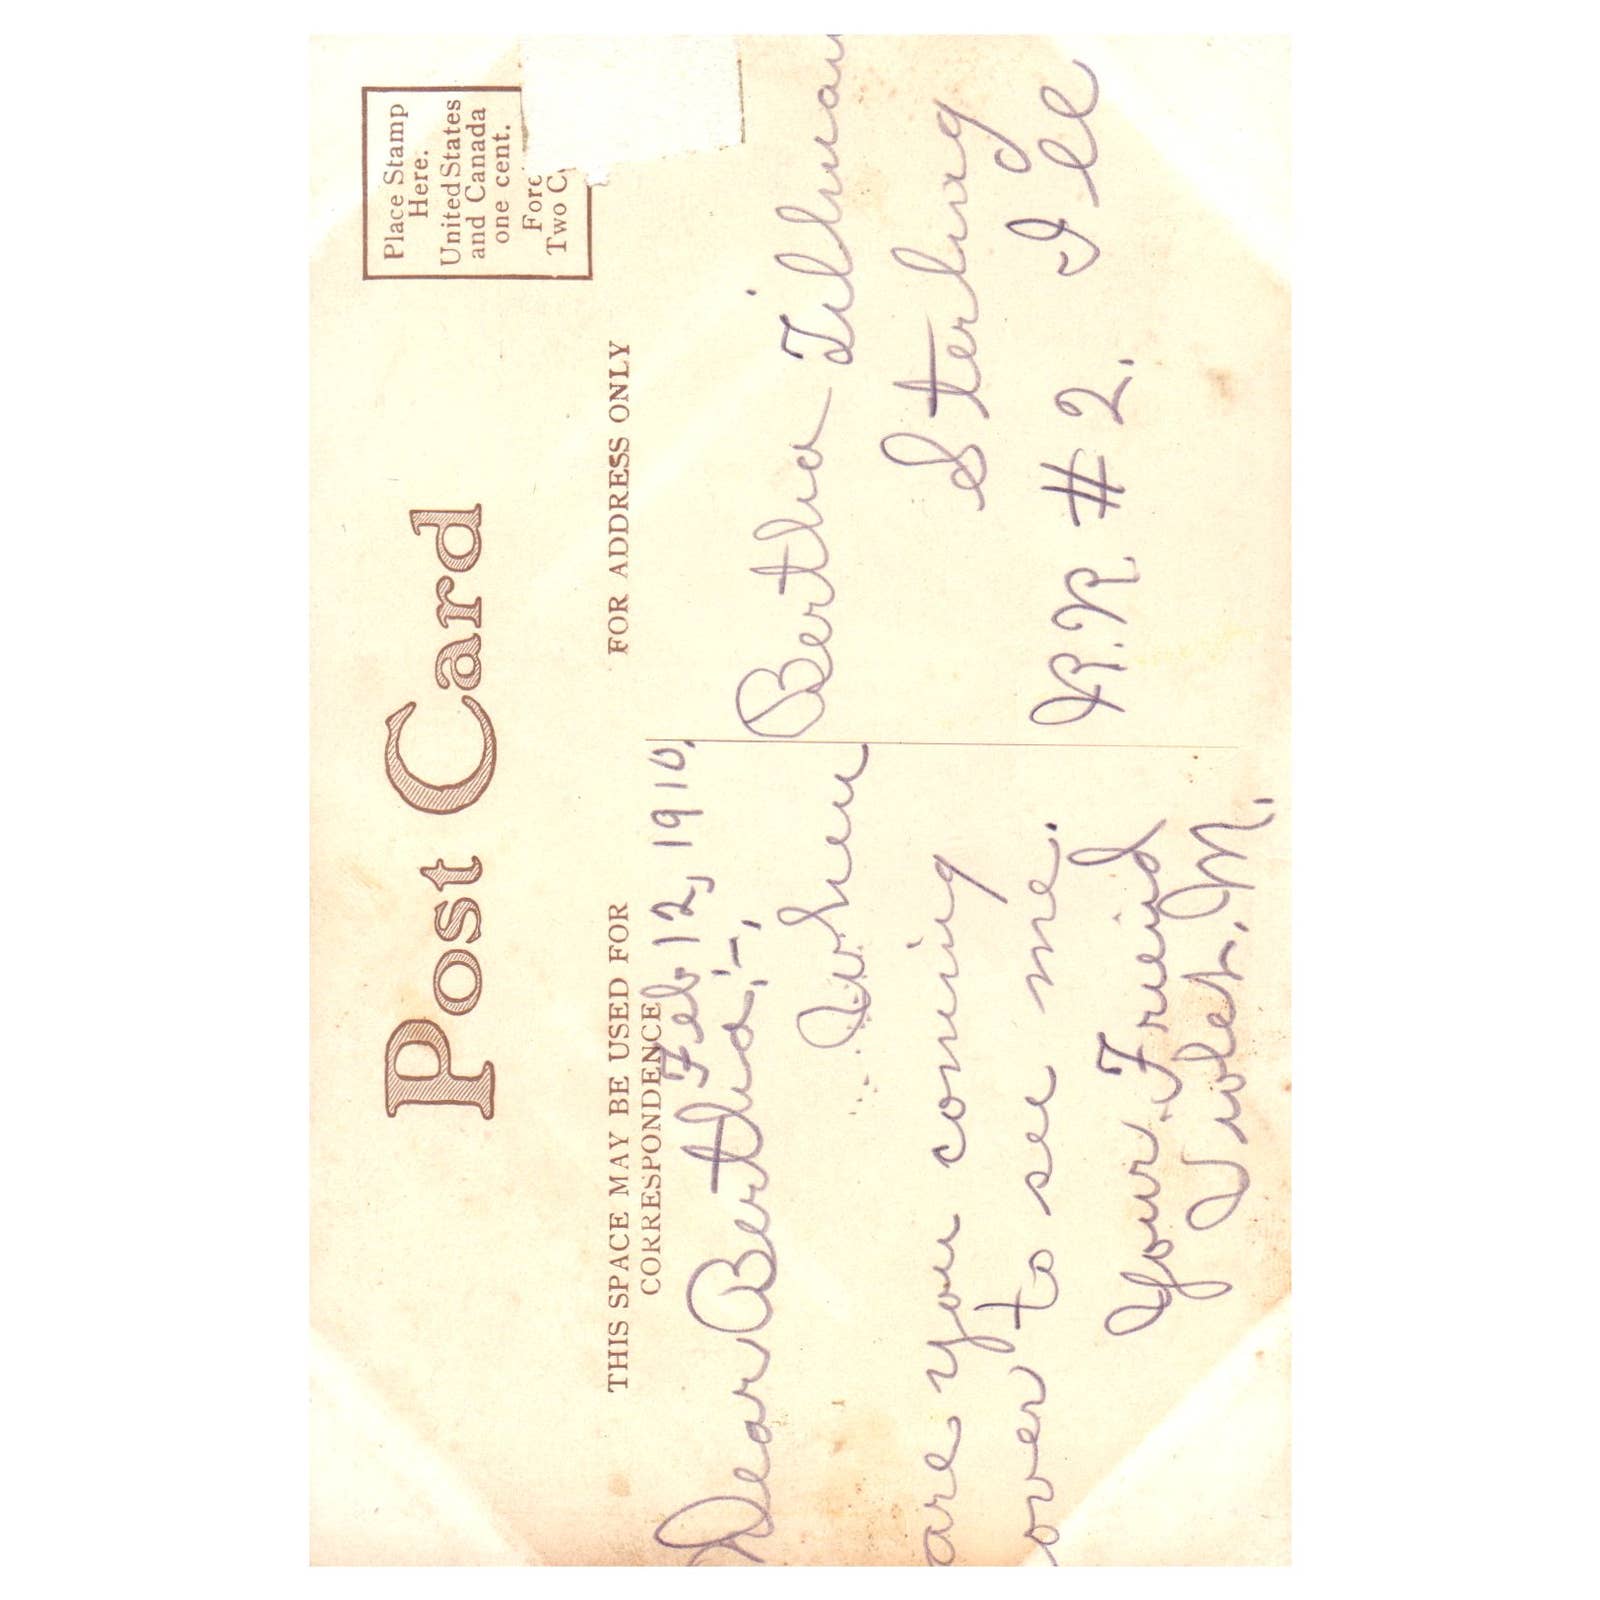 Post Card
Place Stamp
Here.
United States
and Canada
one cent.
Two
THIS SPACE MAY BE USED FOR
CORRESPONDENCE
FOR ADDRESS ONLY
Feb 12, 1910.
Dear Bertha:-,
When
are you coming
over to see me.
Your Freind
Violet. M.
Bertha Tilman
Sterling
R.R. #2. Ill